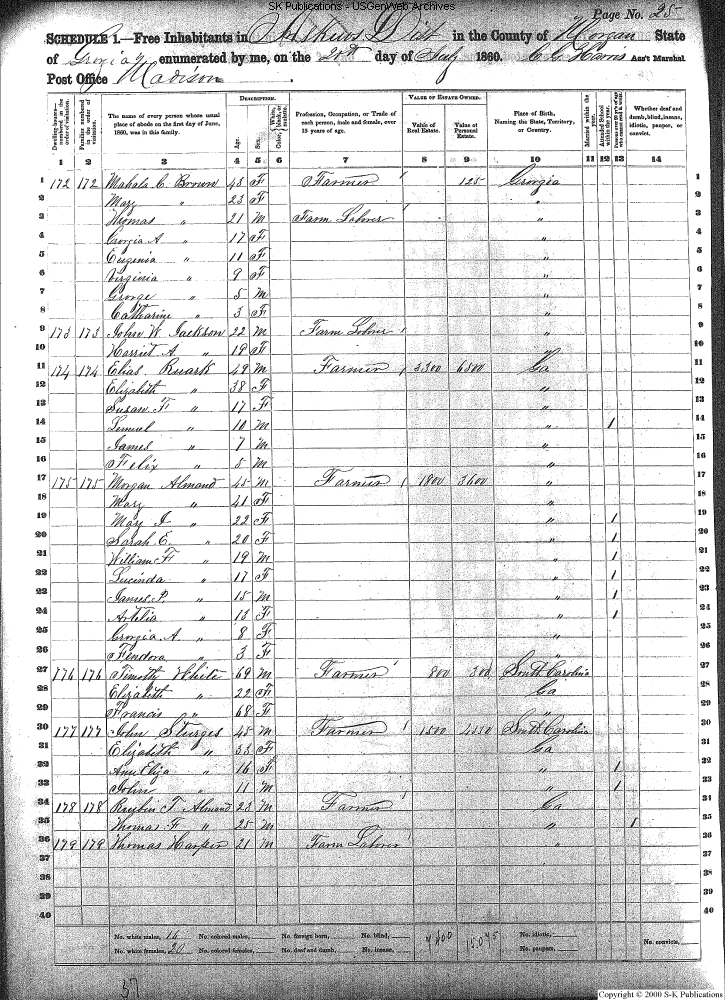 SK Publications - USGenWeb Archives
Page No. 25
SCHEDULE 1.—Free Inhabitants in Askews Dist in the County of Morgan State
of Georgia enumerated by me, on the 20th day of July 1860. C. G. Harris Ass't Marshal
Post Office Madison
Dwelling-houses—numbered in the order of visitation.
Families numbered in the order of visitation.
The name of every person whose usual place of abode on the first day of June, 1860, was in this family.
DESCRIPTION.
Age.
Sex.
Color, White, black, or mulatto.
Profession, Occupation, or Trade of each person, male and female, over 15 years of age.
VALUE OF ESTATE OWNED.
Value of Real Estate.
Value of Personal Estate.
Place of Birth, Naming the State, Territory, or Country.
Married within the year.
Attended School within the year.
Persons over 20 y'rs of age who cannot read & write.
Whether deaf and dumb, blind, insane, idiotic, pauper, or convict.
1 2 3 4 5 6 7 8 9 10 11 12 13 14
1 172 172 Mahala C. Brown 43 F Farmer 125 Georgia 1
2 Mary " 23 F " 2
3 Thomas " 21 M Farm Laborer " 3
4 Georgia A " 17 F " 4
5 Eugenia " 11 F " 5
6 Virginia " 9 F " 6
7 George " 5 M " 7
8 Catharine " 3 F " 8
9 173 173 John W. Jackson 22 M Farm Laborer " 9
10 Harriet A. " 19 F " 10
11 174 174 Elias Ruark 49 M Farmer 3300 6800 Ga 11
12 Elizabeth " 38 F " 12
13 Susan F " 17 F " 13
14 Lemuel " 10 M " 1 14
15 James " 7 M " 15
16 Felix " 5 M " 16
17 175 175 Morgan Almand 45 M Farmer 1800 3600 " 17
18 Mary " 41 F " 18
19 Mary J " 22 F " 1 19
20 Sarah E. " 20 F " 1 20
21 William F " 19 M " 1 21
22 Lucinda " 17 F " 1 22
23 James P. " 15 M " 1 23
24 Artelia " 13 F " 1 24
25 Georgia A " 8 F " 25
26 Fendora " 3 F " 26
27 176 176 Timothy White 69 M Farmer 800 300 South Carolina 27
28 Elizabeth " 22 F Ga 28
29 Francis " 68 F " 29
30 177 177 John Sturges 45 M Farmer 1500 South Carolina 30
31 Elizabeth " 33 F Ga 31
32 Ann Eliza " 16 F " 1 32
33 John " 11 M " 1 33
34 178 178 Reubin T. Almand 23 M Farmer Ga 34
35 Thomas F " 25 M " 1 35
36 179 179 Thomas Harper 21 M Farm Laborer " 36
37 37
38 38
39 39
40 40
No. white males, 16 No. colored males, No. foreign born, No. blind, No. idiotic,
No. white females, 20 No. colored females, No. deaf and dumb, No. insane, No. paupers, No. convicts,
15.075
37
Copyright © 2000 S-K Publications